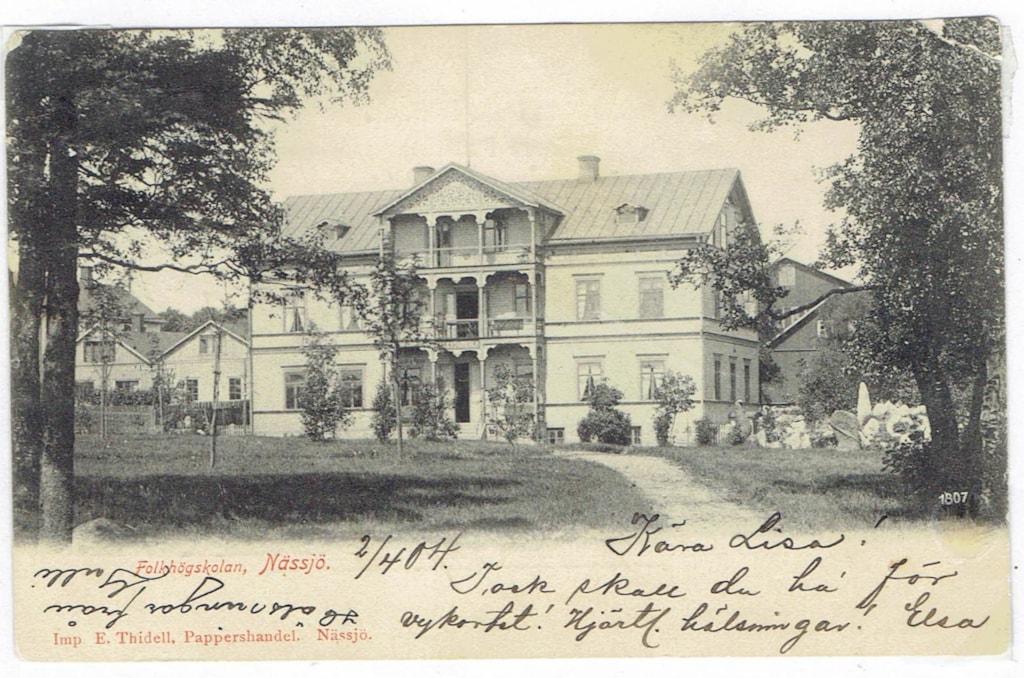 1807
Folkhögskolan, Nässjö.
2/4 04.
Kära Lisa!
Tack skall du ha' för
vykortet! Hjärtl. hälsningar! Elsa
Hälsningar från
Imp E. Thidell, Pappershandel. Nässjö.